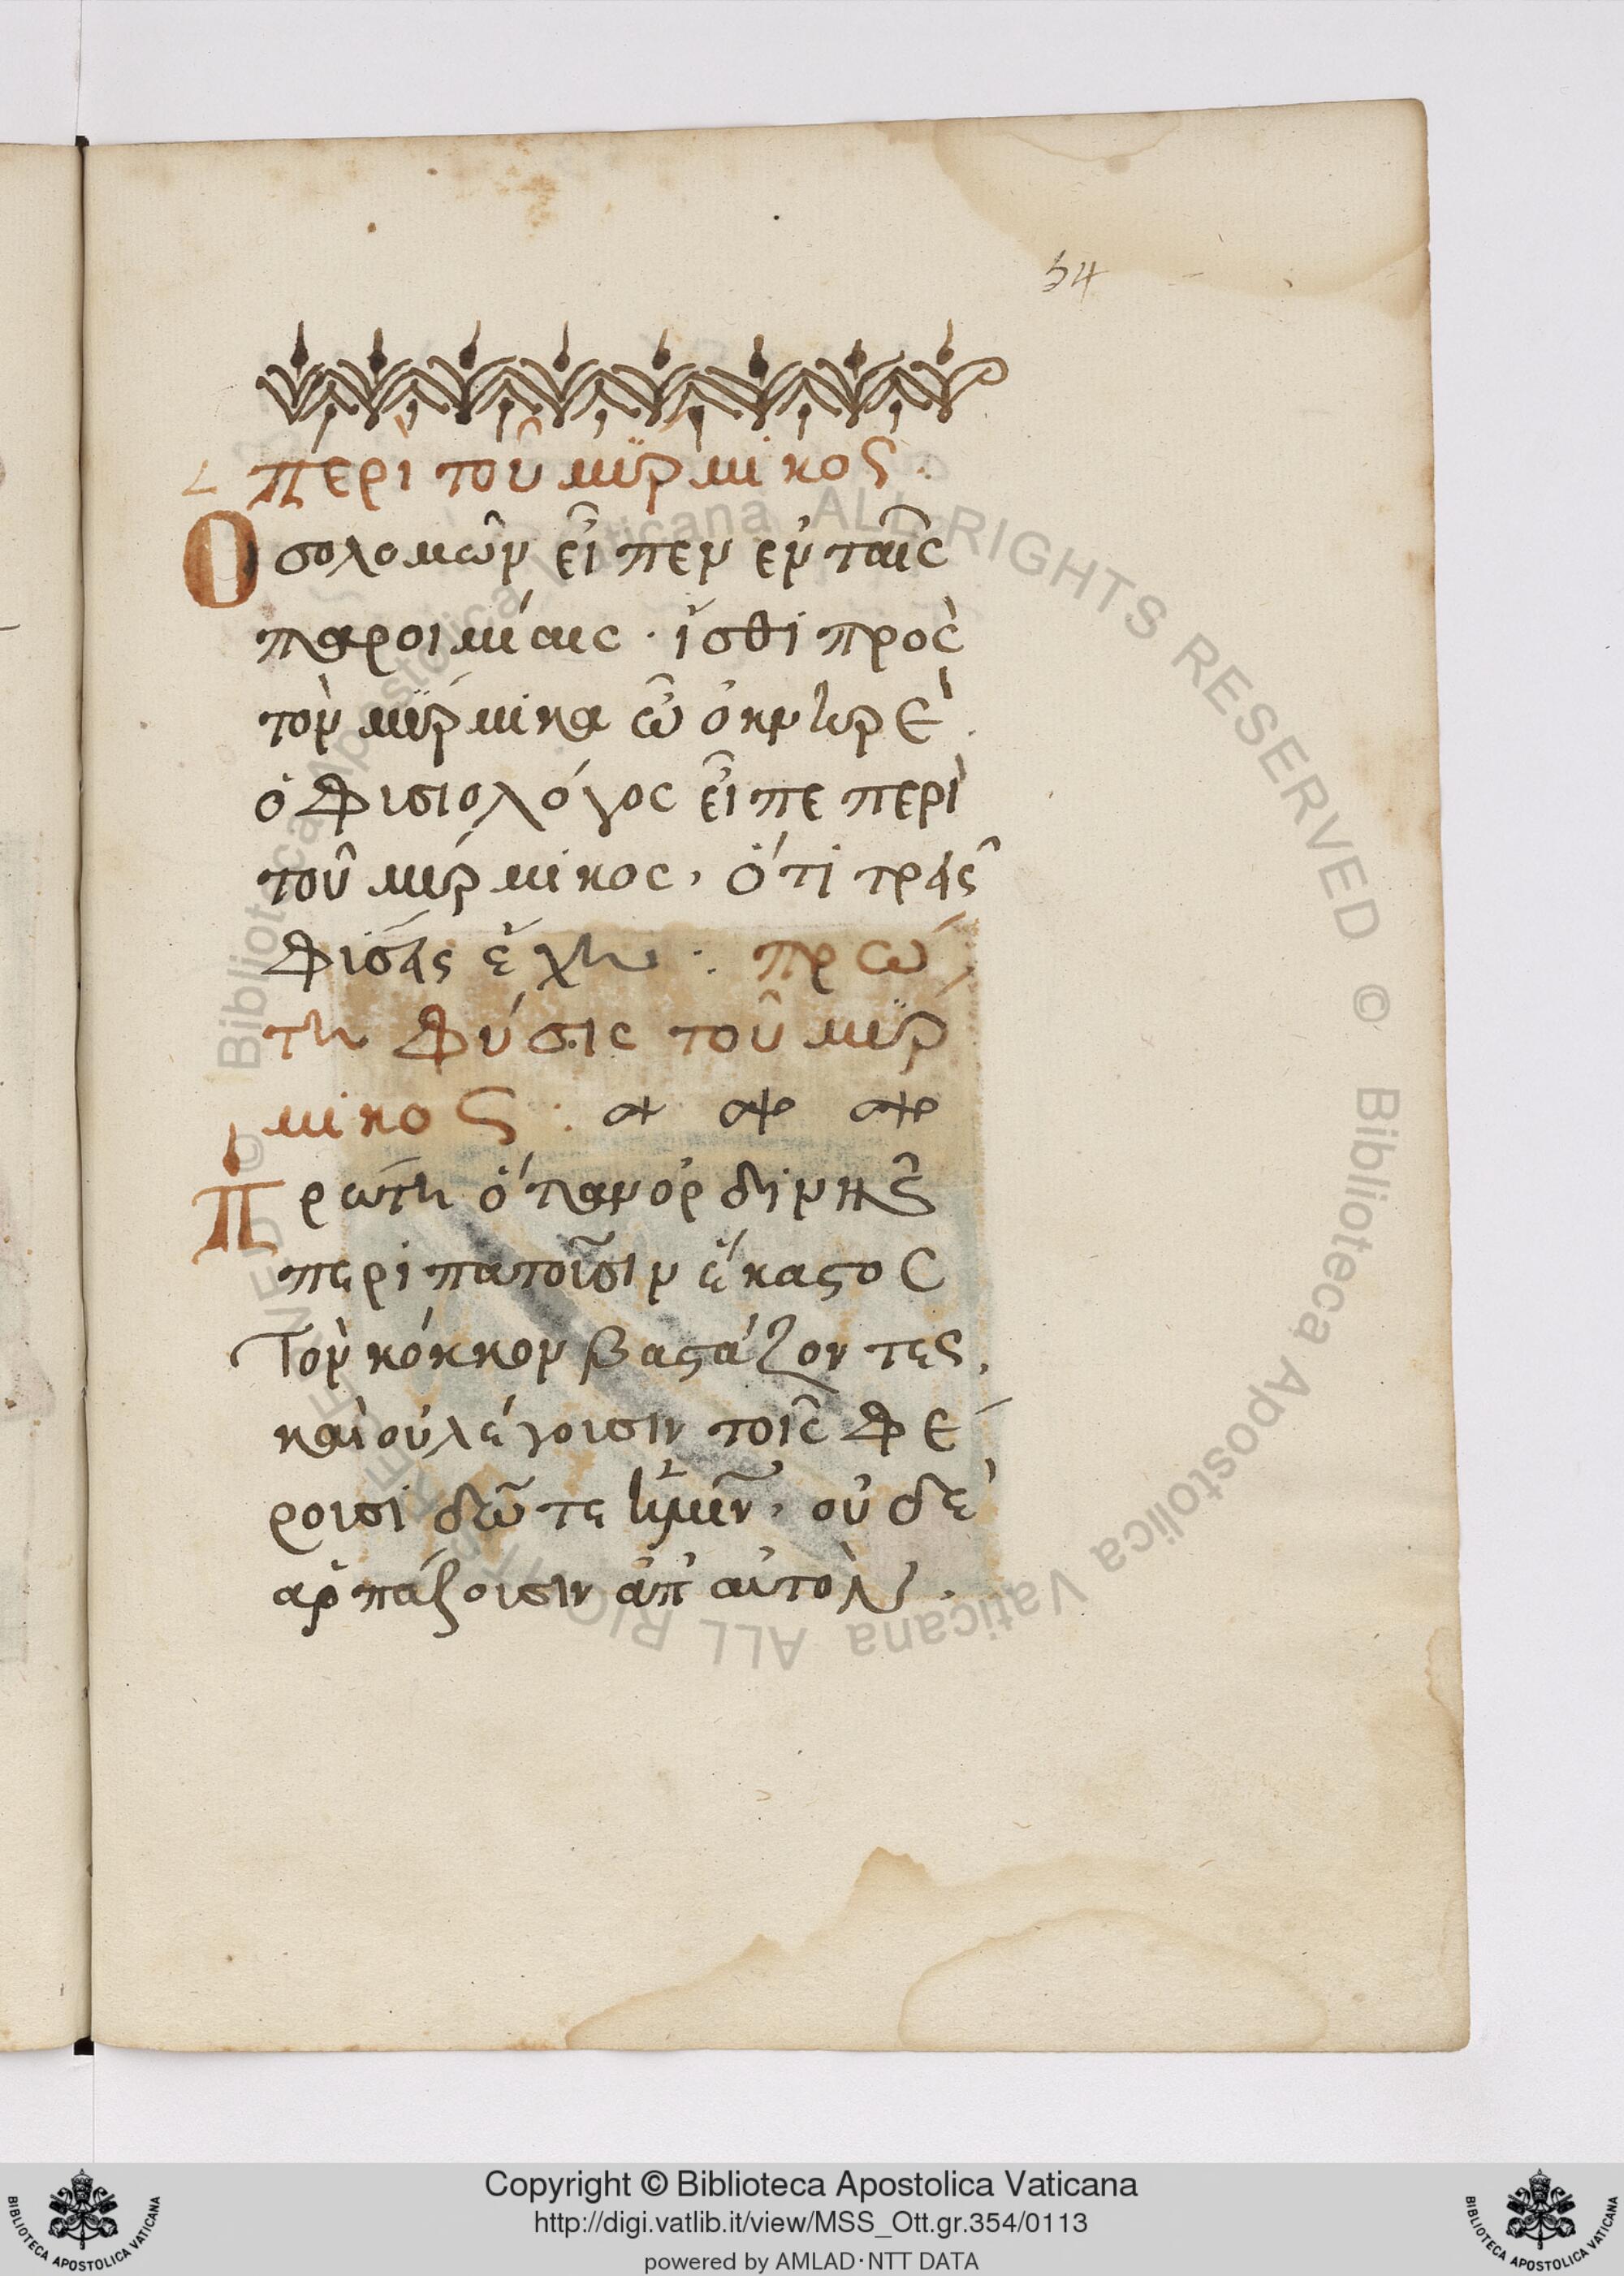 54
περὶ τοῦ μϋρμίκος :
Ο σολομῶν εἶπεν ἐν ταῖς
παροιμίαις · ἴσθι πρὸς
τὸν μϋρμίκα ὦ ὀκνηρὲ .
ὁ φισιολόγος εἶπε περὶ
τοῦ μιρμίκος, ὅτι τρεῖς
φίσεις ἔχη : πρώ
τη φύσις τοῦ μϋρ
μίκος :
Πρώτη ὅταν ὀρδίνης
περιπατοῦσιν ἕκαστος
Τὸν κόκκον βαστάζοντες,
καὶ οὐ λέγουσιν τοῖς φέ
ρουσι δῶτε ἡμῖν, οὐδὲ
αρπάζουσιν ἀπ' αὐτὸν .
Biblioteca Apostolica Vaticana ALL RIGHTS RESERVED ©
Biblioteca Apostolica Vaticana ALL RIGHTS RESERVED ©
Copyright © Biblioteca Apostolica Vaticana
http://digi.vatlib.it/view/MSS_Ott.gr.354/0113
powered by AMLAD·NTT DATA
BIBLIOTECA APOSTOLICA VATICANA
BIBLIOTECA APOSTOLICA VATICANA